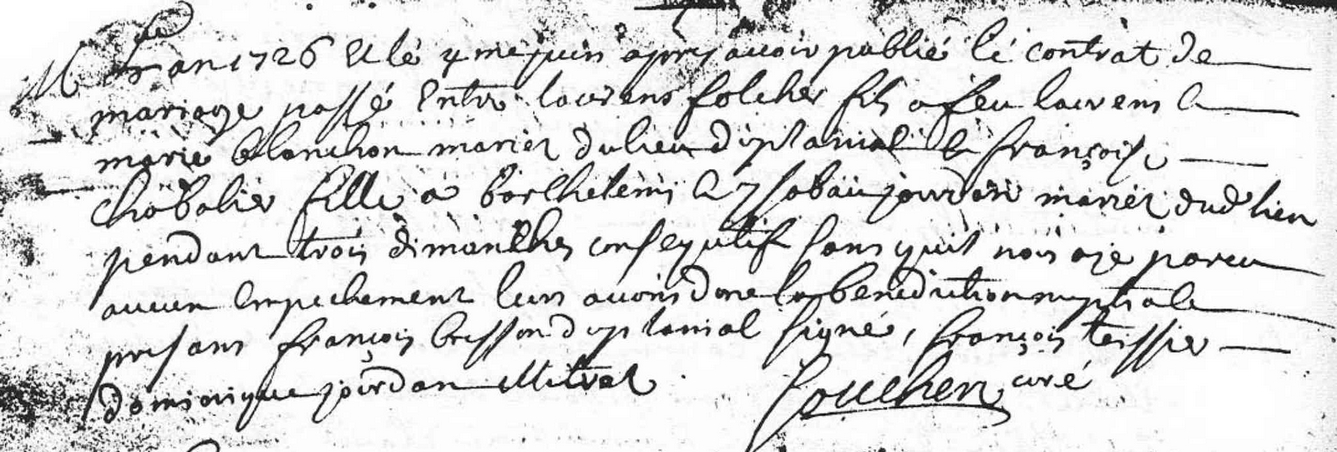 M ge
L'an 1726 et le 4me juin apres avoir publié le contrat de
mariage passé entre laurens folcher fils a feu laurens &
marie blanchon mariez du lieu du planial & françoise
Chabalier fille a barthelemi & jourdan mariez dud lieu
pendant trois dimanches consequtif sans quil nous aje pareu
aucun empechement leur avons done la benediction nuptiale
presans françois brisson du planial signé, françois teissier
dominique jourdan illitrat. curé